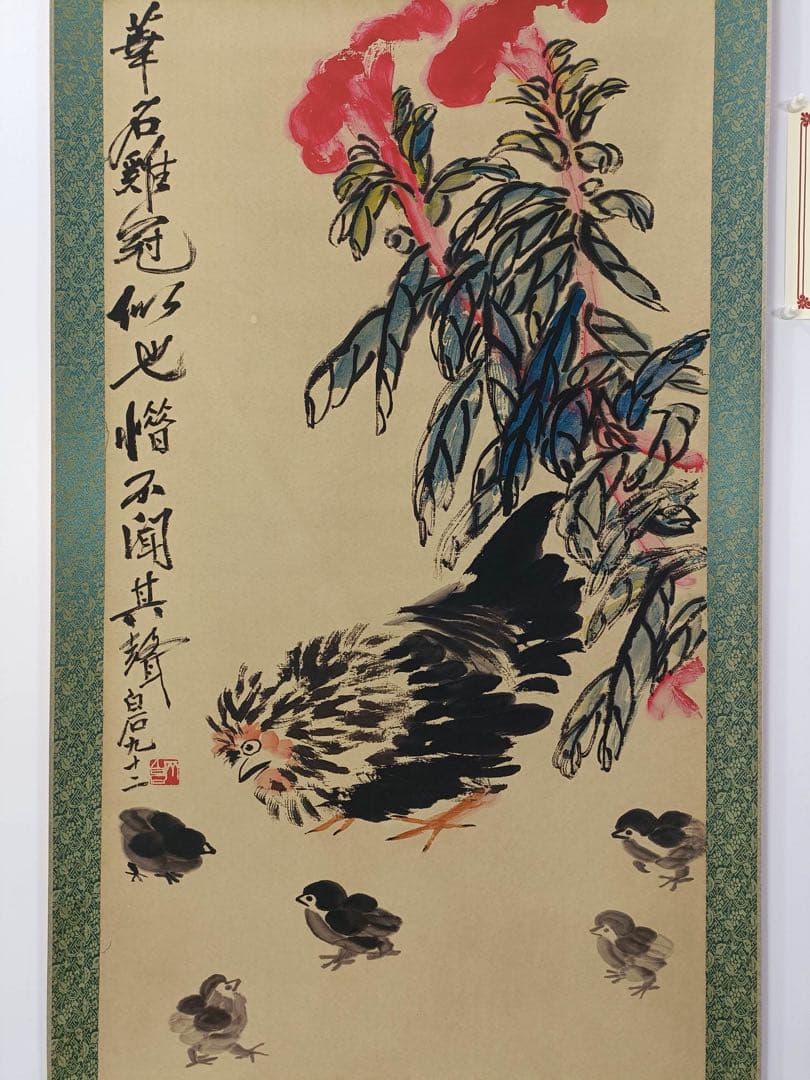 華名雞冠似也惜不聞其聲
白石九十二